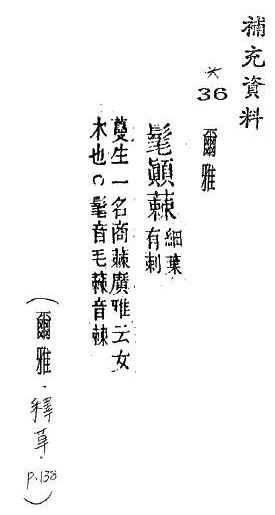 補充資料
*36 爾雅
髦顛蕀 細葉
有刺
蔓生一名商蕀廣雅云女
木也。髦音毛蕀音棘
(爾雅·釋草·P.138)